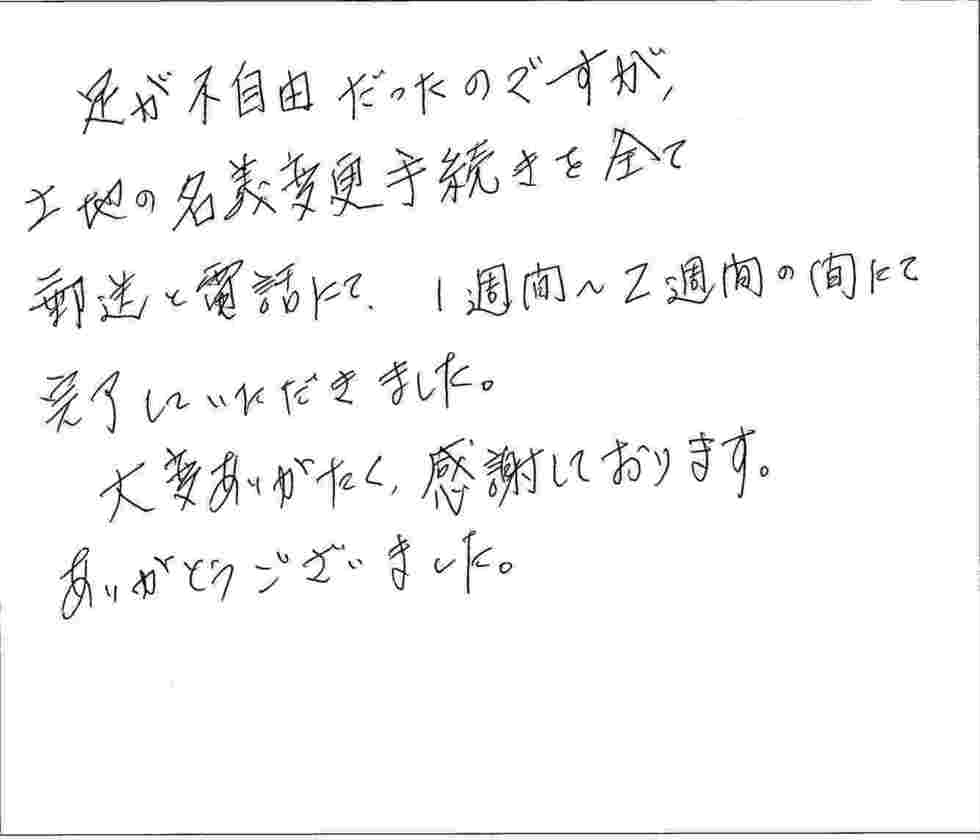 足が不自由だったのですが、
土地の名義変更手続きを全て
郵送と電話にて、1週間～2週間の間にて
完了していただきました。
大変ありがたく、感謝しております。
ありがとうございました。